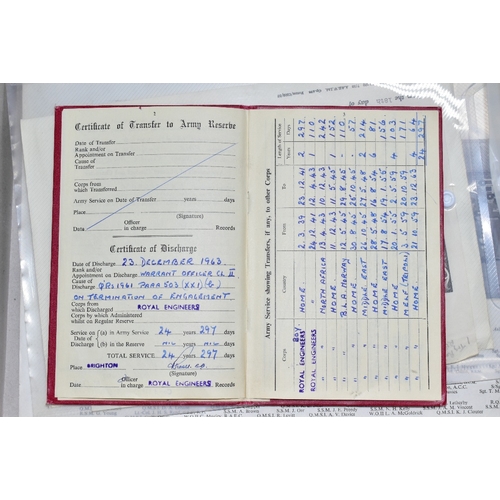 Certificate of Transfer to Army Reserve
Date of Transfer
Rank and/or
Appointment on Transfer
Cause of
Transfer
Corps from
which Transferred
Army Service on Date of Transfer years days
Place
(Signature)
Officer
in charge Records
Certificate of Discharge
Date of Discharge 23 DECEMBER 1963
Rank and/or
Appointment on Discharge WARRANT OFFICER CL II
Cause of QRs 1961 PARA 503 (XXI) (b)
Discharge
ON TERMINATION OF ENGAGEMENT
Corps from which Discharged ROYAL ENGINEERS
Corps by which Administered
whilst on Regular Reserve
Service on (a) in Army Service 24 years 297 days
Date of
Discharge (b) in the Reserve NIL years NIL days
TOTAL SERVICE 24 years 297 days
Place BRIGHTON
(Signature)
Date Officer in charge ROYAL ENGINEERS Records
Army Service showing Transfers, if any, to other Corps
Corps Country From To Length of Service
Years Days
BOY
ROYAL ENGINEERS HOME 2. 3. 39 23. 12. 41 2 297
ROYAL ENGINEERS HOME 24. 12. 41 12. 4. 43 1 110
" NORTH AFRICA 13. 4. 43 10. 12. 43 242
" HOME 11. 12. 43 11. 5. 45 1 152
" B.L.A. NORWAY 12. 5. 45 29. 8. 45 110
" HOME 30. 8. 45 25. 10. 45
" MIDDLE EAST 26. 10. 45 27. 5. 48 2 214
" HOME 28. 5. 48 16. 8. 54 6 81
" MIDDLE EAST 17. 8. 54 19. 1. 55 156
" HOME 20. 1. 55 2. 5. 59 4 103
" M. EAST (TRIPOLI) 3. 5. 59 20. 10. 59 171
" HOME 21. 10. 59 23. 12. 63 4 64
24 297